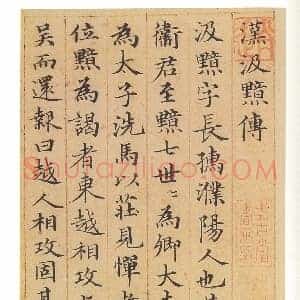 漢汲黯傳
汲黯字長孺濮陽人也
衛君至黯七世〻為卿大
為太子洗馬以莊見憚
位黯為謁者東越相攻
吳而還報曰越人相攻固其
Shufaziliao.com